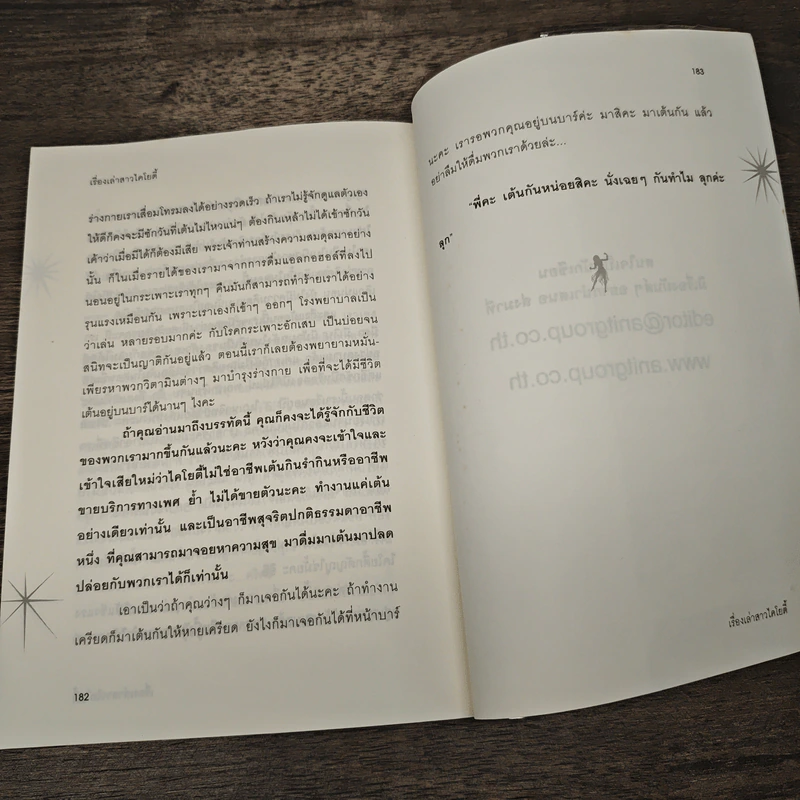 เรื่องเล่าสาวโคโยตี้
ร่างกายเราเสื่อมโทรมลงได้อย่างรวดเร็ว ถ้าเราไม่รู้จักดูแลตัวเอง
ให้ดีก็คงจะมีซักวันที่เต้นไม่ไหวแน่ๆ ต้องกินเหล้าไม่ได้เข้าซักวัน
เค้าว่าเมื่อมีได้ก็ต้องมีเสีย พระเจ้าท่านสร้างความสมดุลมาอย่าง
นั้น ก็ในเมื่อรายได้ของเรามาจากการดื่มแอลกอฮอล์ที่ลงไป
นอนอยู่ในกระเพาะเราทุกๆ คืนมันก็สามารถทำร้ายเราได้อย่าง
รุนแรงเหมือนกัน เพราะเราเองก็เข้าๆ ออกๆ โรงพยาบาลเป็น
ว่าเล่น หลายรอบมากค่ะ กับโรคกระเพาะอักเสบ เป็นบ่อยจน
สนิทจะเป็นญาติกันอยู่แล้ว ตอนนี้เราก็เลยต้องพยายามหมั่น-
เพียรหาพวกวิตามินต่างๆ มาบำรุงร่างกาย เพื่อที่จะได้มีชีวิต
เต้นอยู่บนบาร์ได้นานๆ ไงคะ
ถ้าคุณอ่านมาถึงบรรทัดนี้ คุณก็คงจะได้รู้จักกับชีวิต
ของพวกเรามากขึ้นกันแล้วนะคะ หวังว่าคุณคงจะเข้าใจและ
เข้าใจเสียใหม่ว่าโคโยตี้ไม่ใช่อาชีพเต้นกินรำกินหรืออาชีพ
ขายบริการทางเพศ ย้ำ ไม่ได้ขายตัวนะคะ ทำงานแค่เต้น
อย่างเดียวเท่านั้น และเป็นอาชีพสุจริตปกติธรรมดาอาชีพ
หนึ่ง ที่คุณสามารถมาจอยหาความสุข มาดื่มมาเต้นมาปลด
ปล่อยกับพวกเราได้ก็เท่านั้น
เอาเป็นว่าถ้าคุณว่างๆ ก็มาเจอกันได้นะคะ ถ้าทำงาน
เครียดก็มาเต้นกันให้หายเครียด ยังไงก็มาเจอกันได้ที่หน้าบาร์
182
183
นะคะ เรารอพวกคุณอยู่บนบาร์ค่ะ มาสิคะ มาเต้นกัน แล้ว
อย่าลืมให้ดื่มพวกเราด้วยล่ะ...
"พี่คะ เต้นกันหน่อยสิคะ นั่งเฉยๆ กันทำไม ลุกค่ะ
ลุก"
เรื่องเล่าสาวโคโยตี้